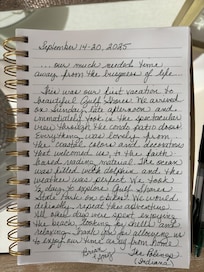 September 14-20, 2025
... our much needed time
away from the busyness of life...
This was our first vacation to
beautiful Gulf Shores. We arrived
on Sunday, late afternoon and
immediately took in the spectacular
view through the condo patio doors.
Everything was lovely from
the coastal colors and decorations
that welcomed us, to the faith
based reading material. The ocean
was filled with dolphins and the
weather was perfect. We took a
½ day to explore Gulf Shores
State Park on ebikes! We would
definitely repeat this adventure.
All other days were spent enjoying
the beach, looking for shells and
relaxing. Thank you for allowing us
to enjoy our time away from home.
The
(Indiana)